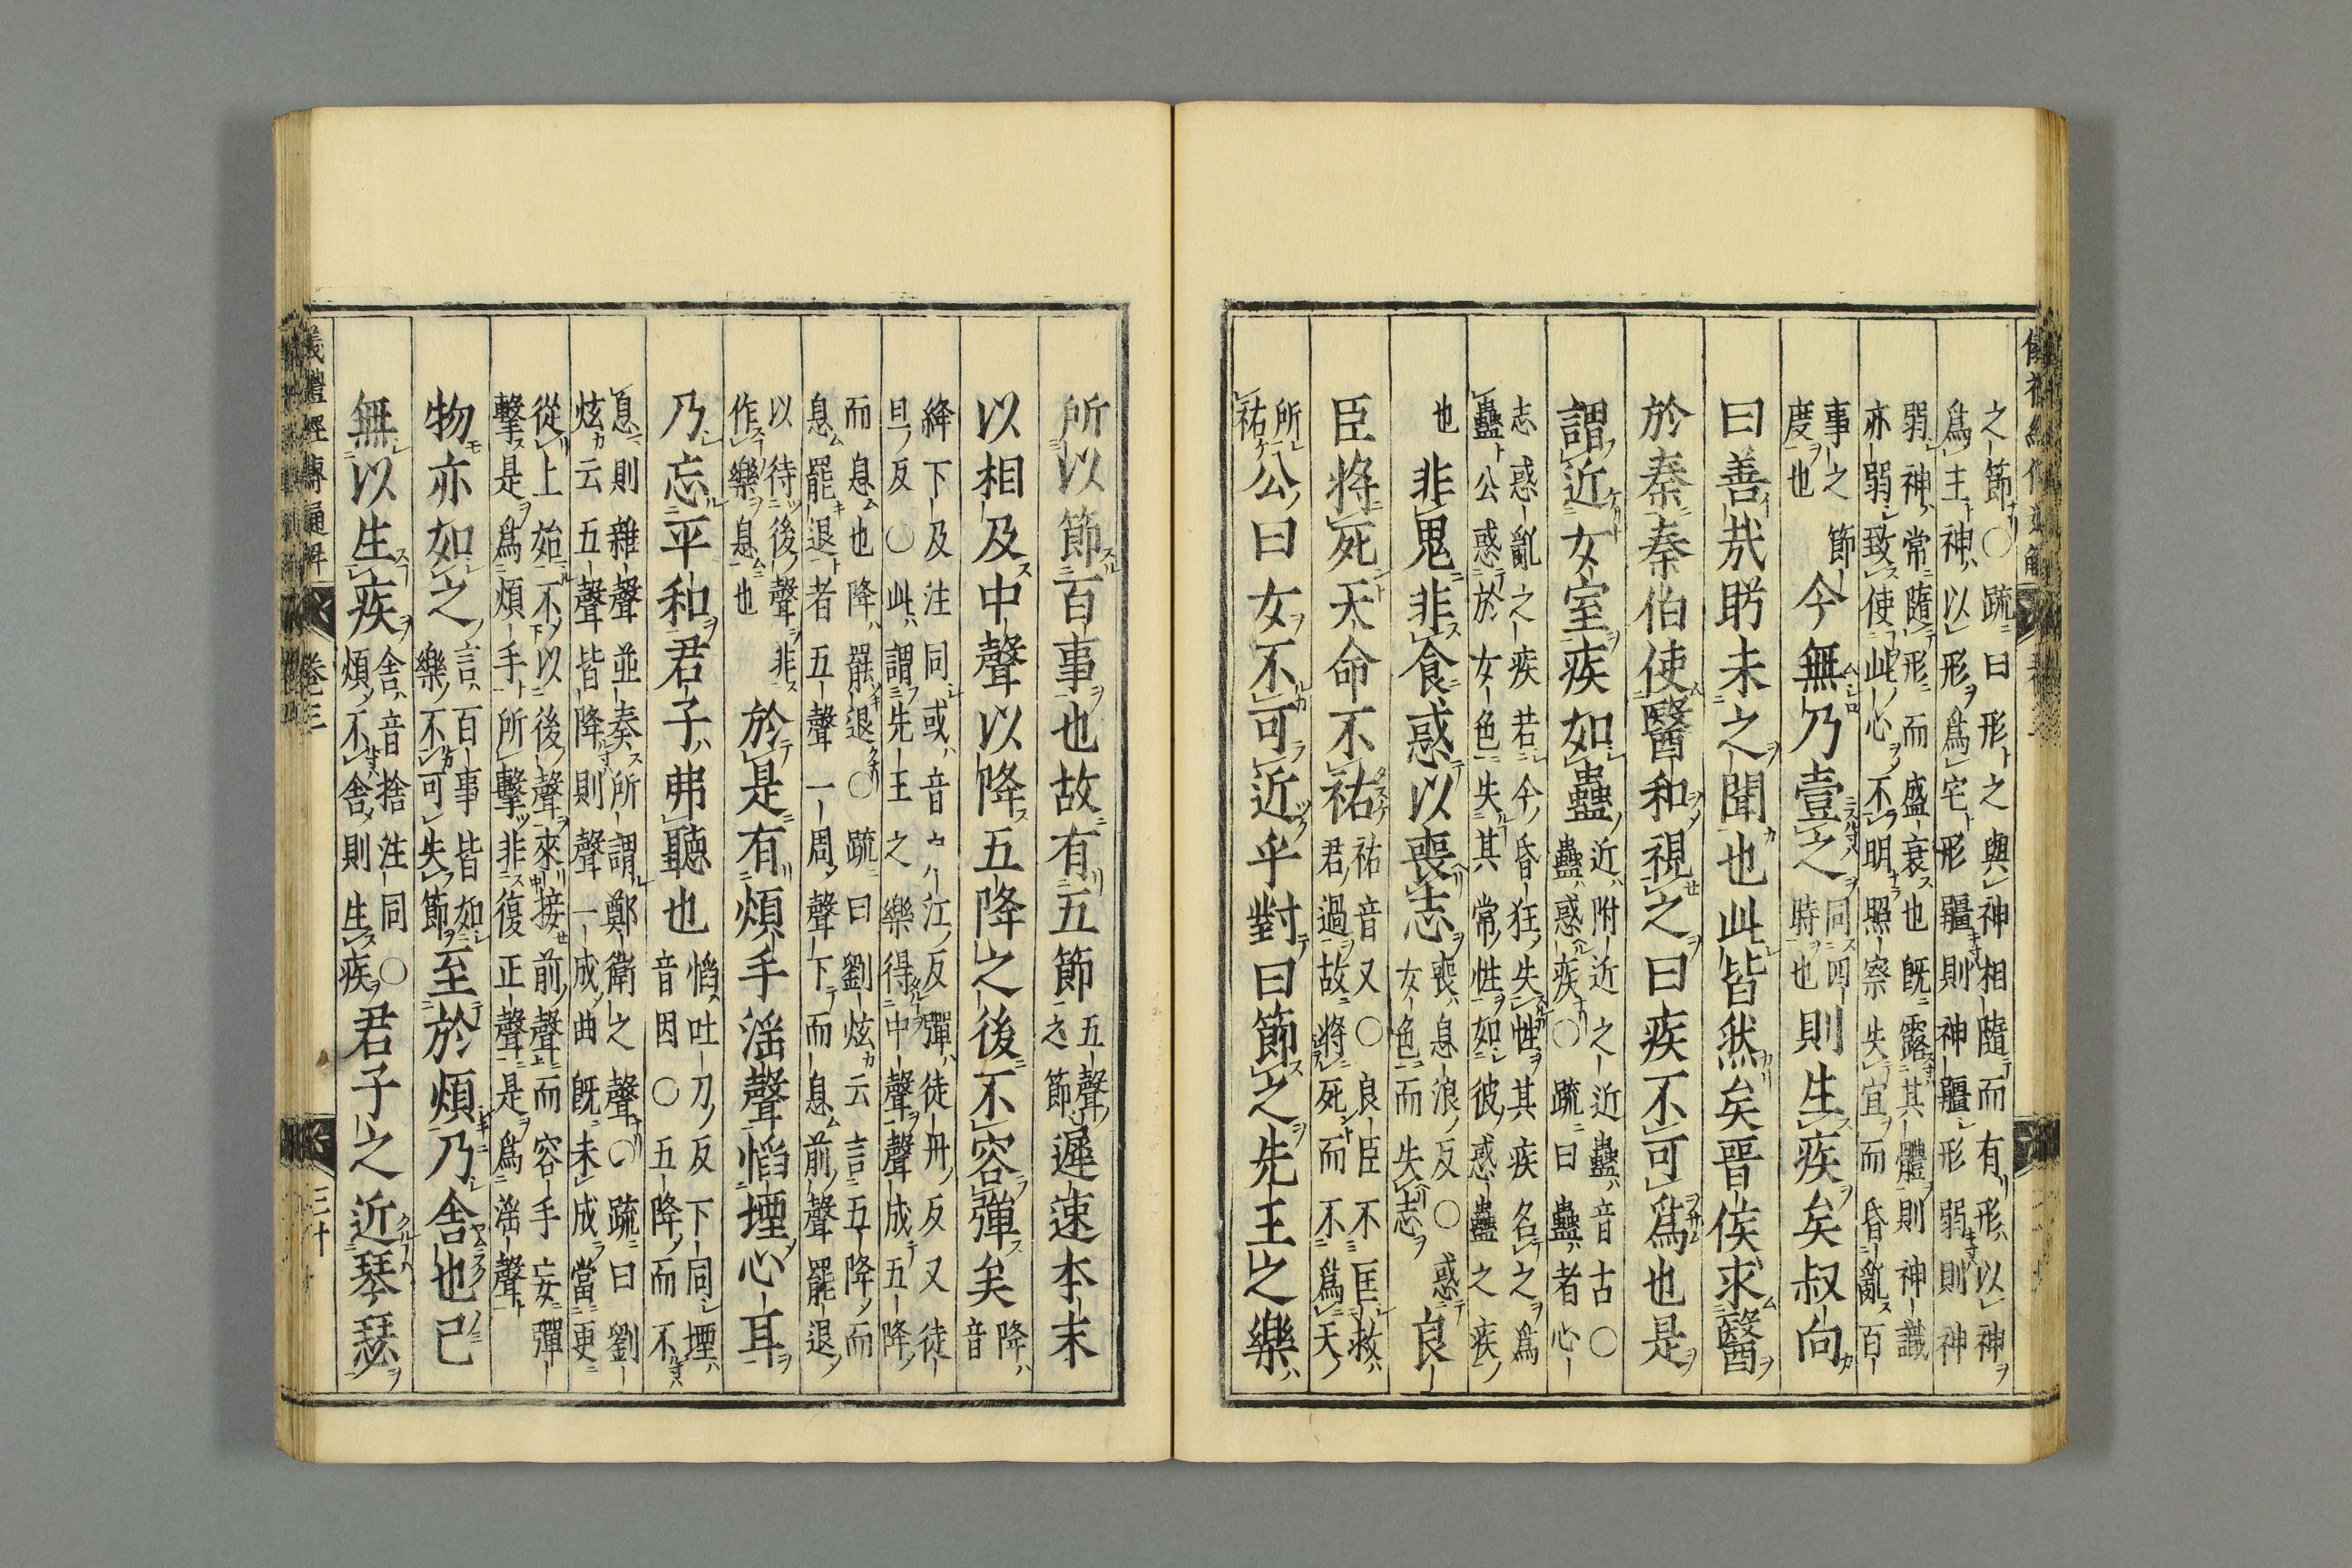 之節○疏曰形之與神相隨而有形以神
爲主神以形爲宅形彊則神彊形弱則神
弱神常隨形而盛衰也既露其體則神識
亦弱致使此心不明照察失宜而昏亂百
事之節度也今無乃壹之同四時也則生疾矣叔向
曰善哉肸未之聞也此皆然矣晋侯求醫
於秦秦伯使醫和視之曰疾不可爲也是
謂近女室疾如蠱近附近之近蠱音古○蠱惑疾○疏曰蠱者心
志惑亂之疾若今昏狂失性其疾名之爲
蠱公惑於女色失其常性如彼惑蠱之疾
也非鬼非食惑以喪志喪息浪反○惑女色而失志良
臣將死天命不祐祐音又○良臣不匡救君過故將死而不爲天
所祐公曰女不可近乎對曰節之先王之樂
所以節百事也故有五節五聲之節遲速本末
以相及中聲以降五降之後不容彈矣降音
絳下及注同或音戶江反彈徒丹反又徒
旦反○此謂先王之樂得中聲聲成五降
而息也降罷退○疏曰劉炫云言五降而
息罷退者五聲一周聲下而息前聲罷退
以待後聲非作樂息也於是有煩手滛聲慆堙心耳
乃忘平和君子弗聽也慆吐刀反下同堙音因○五降而不
息則雜聲並奏所謂鄭衛之聲○疏曰劉
炫云五聲皆降則聲一成曲既未成當更
從上始不以後聲來接前聲而容手妄彈
擊是爲煩手所擊非復正聲是爲滛聲
物亦如之言百事皆如樂不可失節至於煩乃舍也已
無以生疾舍音捨注同○煩不舍則生疾君子之近琴瑟
儀禮經傳通解 卷三 三十